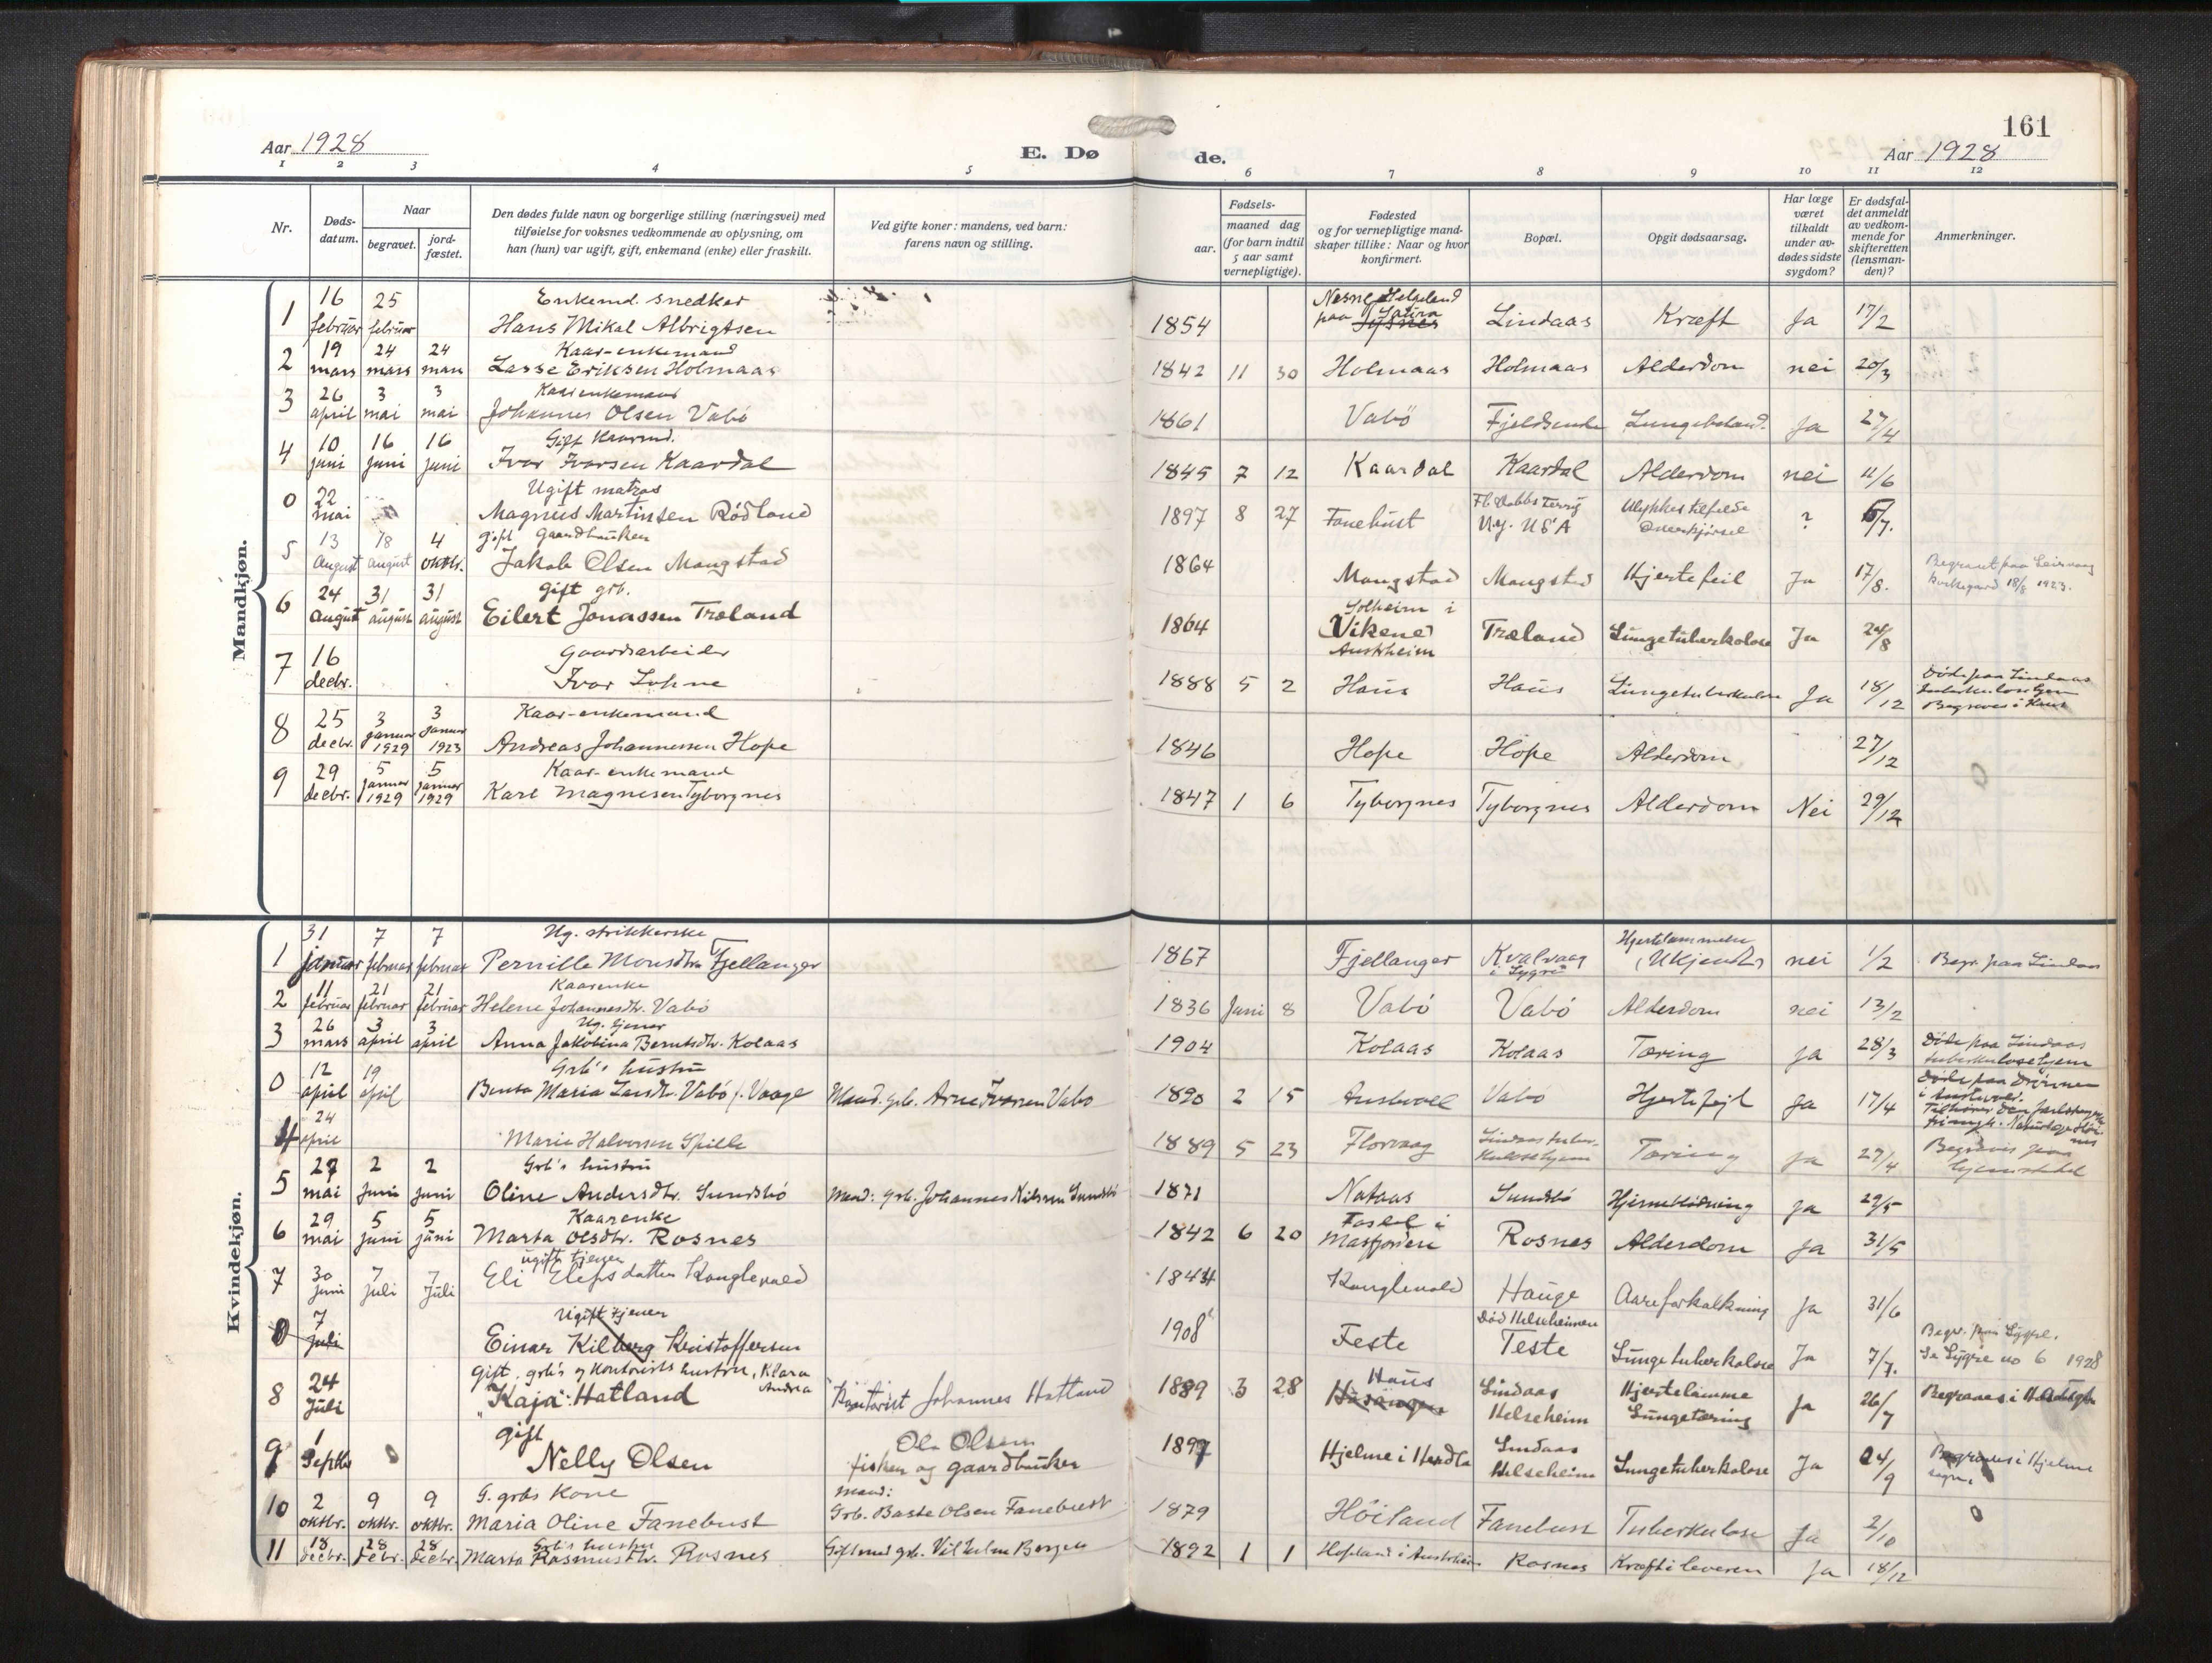 161
Aar 1928
E. Døde.
Aar 1928
1 2 3 4 5 6 7 8 9 10 11 12
Nr.
Døds-datum.
Naar
begravet.
jord-fæstet.
Den dødes fulde navn og borgerlige stilling (næringsvei) med
tilføielse for voksnes vedkommende av oplysning, om
han (hun) var ugift, gift, enkemand (enke) eller fraskilt.
Ved gifte koner: mandens, ved barn:
farens navn og stilling.
Fødsels-
aar.
maaned dag
(for barn indtil
5 aar samt
vernepligtige).
Fødested
og for vernepligtige mand-
skaper tillike: Naar og hvor
konfirmert.
Bopæl.
Opgit dødsaarsag.
Har læge
været
tilkaldt
under av-
dødes sidste
sygdom?
Er dødsfal-
det anmeldt
av vedkom-
mende for
skifteretten
(lensman-
den)?
Anmerkninger.
Mandkjøn.
1 16 februar 25 februar Enkemd. snedker
Hans Mikal Albrigtsen 1854 Nesne Helgeland paa Lindaas Kræft Ja 17/2
2 19 mars 24 mars 24 mars Kaar-enkemand
Lasse Eriksen Holmaas 1842 11 30 Holmaas Holmaas Alderdom nei 20/3
3 26 april 3 mai 3 mai Kaarenkemand
Johannes Olsen Vabø 1861 Vabø Fjeldsende Lungebetænd. Ja 27/4
4 10 juni 16 juni 16 juni Gift Kaarmd.
Ivar Ivarsen Kaardal 1845 7 12 Kaardal Kaardal Alderdom nei 11/6
0 22 mai Ugift matros
Magnus Martinsen Rødland 1897 8 27 Fanebust N.y. USA Ulykkestilfelde Overkjørsel ? 5/7.
5 13 august 18 august 4 oktbr. gift Gaardbruker
Jakob Olsen Mongstad 1864 Mongstad Mongstad Hjertefeil Ja 17/8. Begravet paa Leirvaag kirkegaard 18/8 1923.
6 24 august 31 august 31 august Gift grb.
Eilert Jonassen Træland 1864 Solheim i Vikene Austrheim Træland Lungetuberkolose Ja 24/8
7 16 decbr. Gaardsarbeider
Ivar Lohne 1888 5 2 Haus Haus Lungetuberkulose Ja 18/12 Døde paa Lindaas tuberkulosehjem Begraves i Haus
8 25 decbr. 3 januar 1929 3 januar 1923 Kaar-enkemand
Andreas Johannessen Hope 1846 Hope Hope Alderdom 27/12
9 29 decbr. 5 januar 1929 5 januar 1929 Kaar-enkemand
Karl Magnesen Tyborgnes 1847 1 6 Tyborgnes Tyborgnes Alderdom Nei 29/12
Kvindekjøn.
1 31 januar 7 februar 7 februar Ug. strikkerske
Pernille Monsdtr. Fjellanger 1867 Fjellanger Kvalvaag i Lygre Hjertelammelse (Ukjendt) nei 1/2 Begr. paa Lindaas
2 11 februar 21 februar 21 februar Kaarenke
Helene Johannesdtr. Vabø 1836 Juni 8 Vabø Vabø Alderdom nei 13/2
3 26 mars 3 april 3 april Ug. tjener
Anna Jakobina Berntsdtr. Kolaas 1904 Kolaas Kolaas Tæring ja 28/3 Døde paa Lindaas tuberkulosehjem
0 12 april 19 april Grb's hustru
Benta Maria Larsdtr. Vabø f. Vaage Mand. grb. Arne Ivarsen Vabø 1890 2 15 Austevoll Vabø Hjertefejl ja 17/4 Døde paa i Austevoll.
4 24 april Marie Halvorsen Spille 1889 5 23 Florvaag Lindaas tuberkulosehjem Tæring ja 27/4 Begraves paa hjemstedet
5 27 mai 2 juni 2 juni Grb's hustru
Oline Andersdtr. Sundsbø Mand: Grb. Johannes Nilssen Sundsbø 1871 Nataas Sundsbø Hjerneblødning ja 29/5
6 29 mai 5 juni 5 juni Kaarenke
Marta Olsdtr. Rosnes 1842 6 20 i Masfjorden Rosnes Alderdom ja 31/5
7 30 juni 7 juli 7 juli ugift tjener
Eli Elefsdatter Konglevold 1844 Konglevold Hauge Aareforkalkning ja 31/6
0 7 juli Ugift tjener
Einar Kilberg Kristoffersen 1908 Feste Død Helseheimen Teste Lungetuberkolose Ja 7/7. Begr. paa Lygre. Se Lygre no 6 1928
8 24 juli gift, grb's og kontorists hustru, Klara Andrea
"Kaja" Hatland Kontorist Johannes Hatland 1889 3 28 Haus Lindaas Helseheim Hjertelamme Lungetæring ja 26/7 Begraves i
9 1 Septbr gift
Nelly Olsen Ole Olsen fisker og gaardbruker 1897 Hjelme i Herdla Lindaas Helseheim Lungetuberkolose Ja 24/9 Begraves i Hjelme sogn.
10 2 oktbr. 9 oktbr. 9 oktbr. G. grbs kone
Maria Oline Fanebust Mand: Grb. Baste Olsen Fanebust 1879 Høiland Fanebust Tuberkulose Ja 2/10
11 18 decbr. 28 debr. 28 decbr. Grb's hustru
Marta Rasmusdtr. Rosnes Gift med grb. Vilhelm Bergen 1892 1 1 Hopland i Austrheim Rosnes Kræft i leveren Ja 18/12